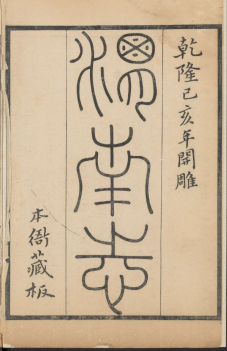 乾隆己亥年開雕
南志
本衙藏板